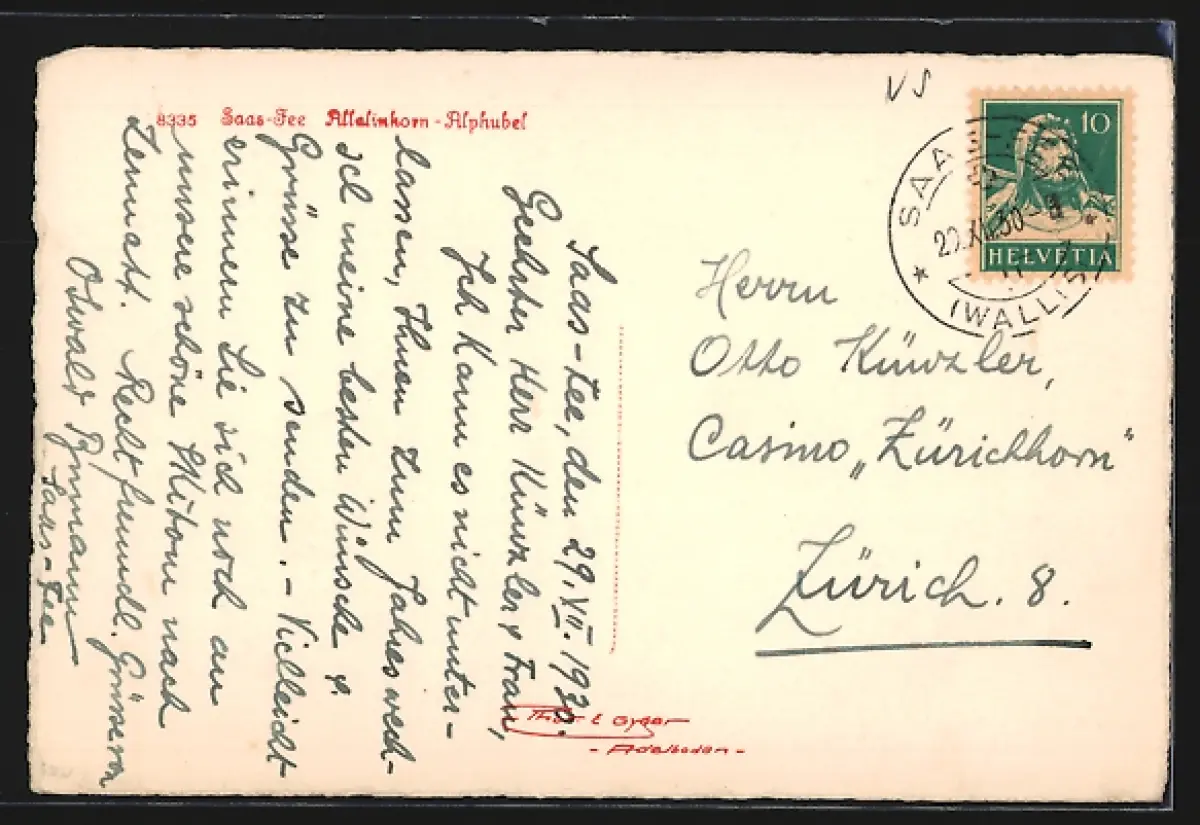 8335 Saas-Fee Allalinhorn-Alphubel
VS
10
HELVETIA
SAAS
(WALLIS)
Saas-Fee, den 29. VII. 1930.
Geehrter Herr Künzler & Frau,
Ich kann es nicht unter-
lassen, Ihnen zum Jahreswech-
sel meine besten Wünsche &
Grüsse zu senden. - Vielleicht
erinnern Sie sich noch an
unsere schöne Skitour nach
Zermatt. Recht freundl. Grüsse von
Othwald
Saas-Fee
Herrn
Otto Künzler,
Casino „Zürichhorn"
Zürich. 8.
E Gyger
- Adelboden -